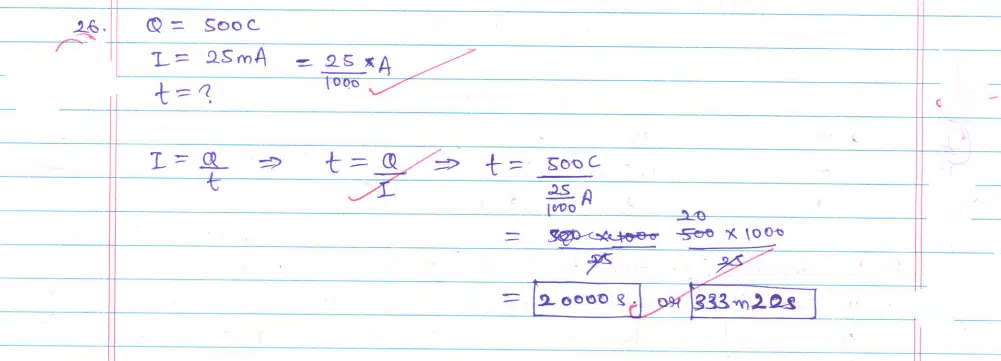 26. Q = 500C
I = 25mA = 25/1000 A
t = ?
I = Q/t ⇒ t = Q/I ⇒ t = 500C / (25/1000 A)
= 20 500 × 1000 / 25
= 20000s. or 333m20s